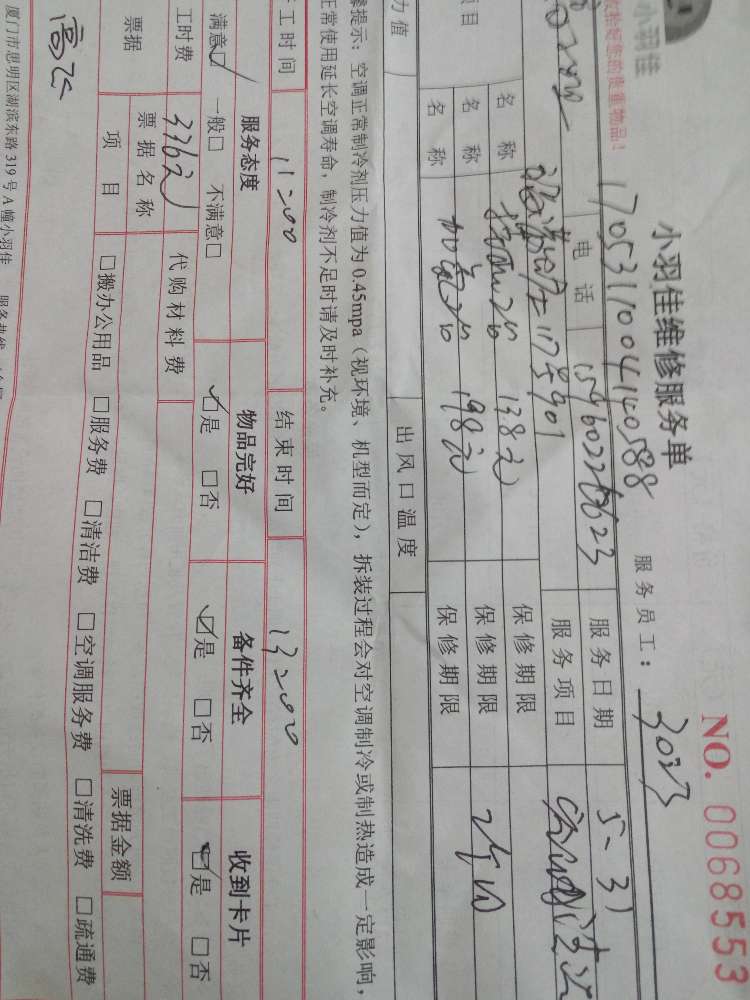 小羽佳
NO. 0068553
小羽佳维修服务单
17053110041140588
服务员工：3023
电话 15960226623 服务日期 5-31
服务项目
名称 138元 保修期限
名称 加氟 198元 保修期限
名称 保修期限
力值 出风口温度
提示：空调正常制冷剂压力值为0.45mpa（视环境、机型而定），拆装过程会对空调制冷或制热造成一定影响，
正常使用延长空调寿命，制冷剂不足时请及时补充。
工时间 11:00 结束时间 13:00
服务态度 物品完好 备件齐全 收到卡片
满意☑ 一般□ 不满意□ ☑是 □否 ☑是 □否 ☑是 □否
工时费 336元 代购材料费
票据 票据名称 票据金额
项目 □搬办公用品 □服务费 □清洁费 □空调服务费 □清洗费 □疏通费
厦门市思明区湖滨东路319号A幢小羽佳